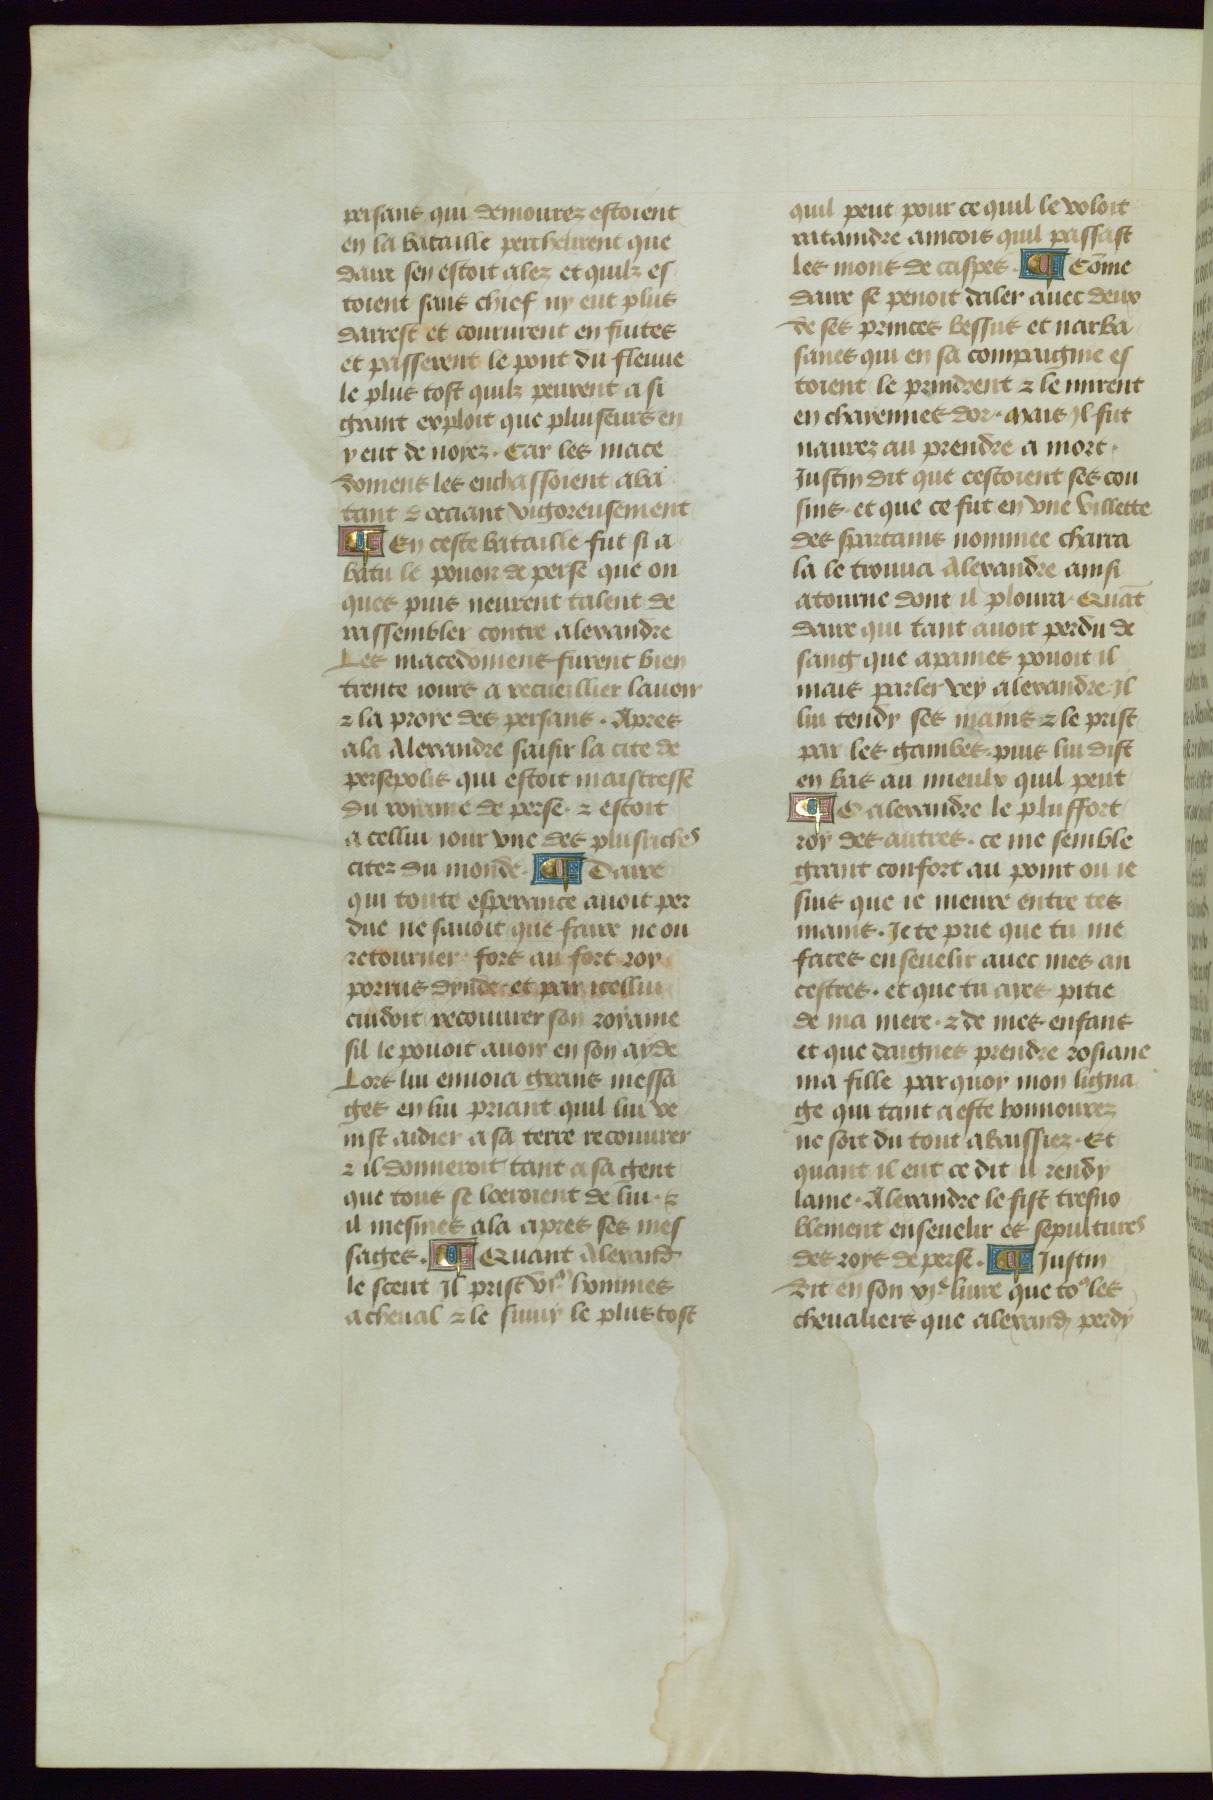 persans qui demourez estoient
en la bataille percheurent que
daire sen estoit alez et quilz es
toient sans chief ny eut plus
darrest et coururent en fuites
et passerent le pont du fleuue
le plus tost quilz peurent a si
grant exploit que pluiseurs en
y eut de noyez. Car les mace
doniens les enchassoient aba
tant ⁊ occiant vigoreusement
¶ En ceste bataille fut si a
batu le pouoir de perse que on
ques puis neurent talent de
rassembler contre alexandre
Les macedoniens furent bien
trente iours a recueillier lauoir
⁊ la proye des persans. Apres
ala Alexandre saisir la cite de
persepolis qui estoit maistresse
du royame de perse. ⁊ estoit
a cellui iour vne des plus riches
citez du monde. ¶ Daire
qui toute esperance auoit per
due ne sauoit que faire ne ou
retourner fors au fort roy
porrus dynde et par icellui
cuidoit recouurer son royame
sil le pouoit auoir en son ayde
Lors lui enuoia grans messa
ges en lui priant quil lui ve
nist aidier a sa terre recouurer
⁊ il donneroit tant a sa gent
que tous se loeroient de lui. ⁊
il mesmes ala apres ses mes
sages. ¶ Quant Alexandr
le sceut Il prist vjᵐ hommes
a cheual ⁊ le suiuy le plus tost
quil peut pour ce quil le voloit
rataindre aincois quil passast
les mons de caspes. ¶ Cōme
daire se penoit daler auec deux
de ses princes bessus et narba
sanes qui en sa compaignie es
toient le prindrent ⁊ le mirent
en chayennes dor. Mais Il fut
naurez au prendre a mort.
Justin dit que cestoient ses cou
sins. et que ce fut en vne villette
des spartains nommee charra
la le trouua Alexandre ainsi
atourne dont il ploura. Quāt
daire qui tant auoit perdu de
sang que apaines pouoit il
mais parler vey alexandre Il
lui tendy ses mains ⁊ le prist
par les gambes. puis lui dist
en bas au mieulx quil peut
¶ O alexandre le plus fort
roy des autres. ce me semble
grant confort au point ou ie
suis que ie meure entre tes
mains. Je te prie que tu me
faces enseuelir auec mes an
cestres. et que tu aies pitie
de ma mere. ⁊ de mes enfans
et que daignes prendre rosiane
ma fille par quoy mon ligna
ge qui tant a este honnourez
ne soit du tout abaissiez. Et
quant il eut ce dit il rendy
lame. Alexandre le fist tresno
blement enseuelir es sepultures
des roys de perse. ¶ Justin
dit en son vjᵉ liure que toꝰ les
cheualiers que alexandr perdy